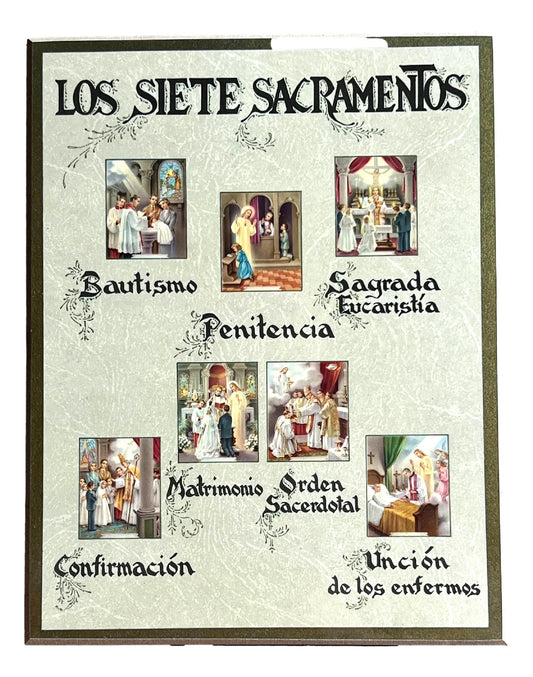 LOS SIETE SACRAMENTOS
Bautismo
Penitencia
Sagrada
Eucaristía
Matrimonio
Orden
Sacerdotal
Confirmación
Unción
de los enfermos